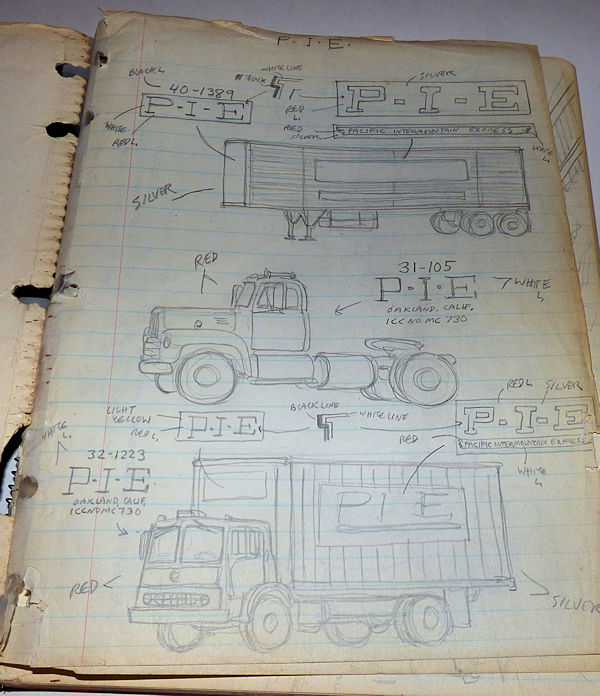 P. I. E.
BLACK L.
40-1389
P·I·E
WHITE
RED L.
WHITE LINE
BLACK
SILVER
P·I·E
RED L.
RED
SILVER
PACIFIC INTERMOUNTAIN EXPRESS
WHITE L.
SILVER
RED
31-105
P·I·E
OAKLAND, CALIF.
ICC NO. MC 730
WHITE L.
LIGHT YELLOW
RED L.
P·I·E
BLACK LINE
WHITE LINE
RED L.
SILVER
P·I·E
RED
PACIFIC INTERMOUNTAIN EXPRESS
WHITE L.
WHITE L.
32-1223
P·I·E
OAKLAND, CALIF.
ICC NO MC 730
P I E
RED
SILVER